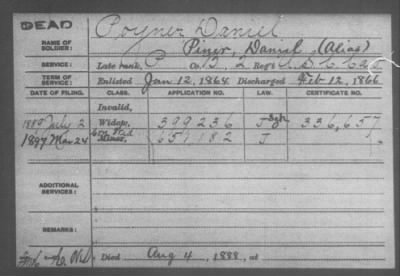 DEAD
Poyner Daniel
NAME OF SOLDIER: Piner, Daniel, (Alias)
SERVICE: Late rank, P Co. B, 2 Reg't U.S.C. Cav
TERM OF SERVICE: Enlisted Jan 12, 1864 Discharged Feb 12, 1866
DATE OF FILING. CLASS. APPLICATION NO. LAW. CERTIFICATE NO.
Invalid,
1889 July 2 Widow, 399236 336,657
1897 Mar 24 Minor, 651182 J
ADDITIONAL SERVICES:
REMARKS:
Died Aug 4, 1888, at